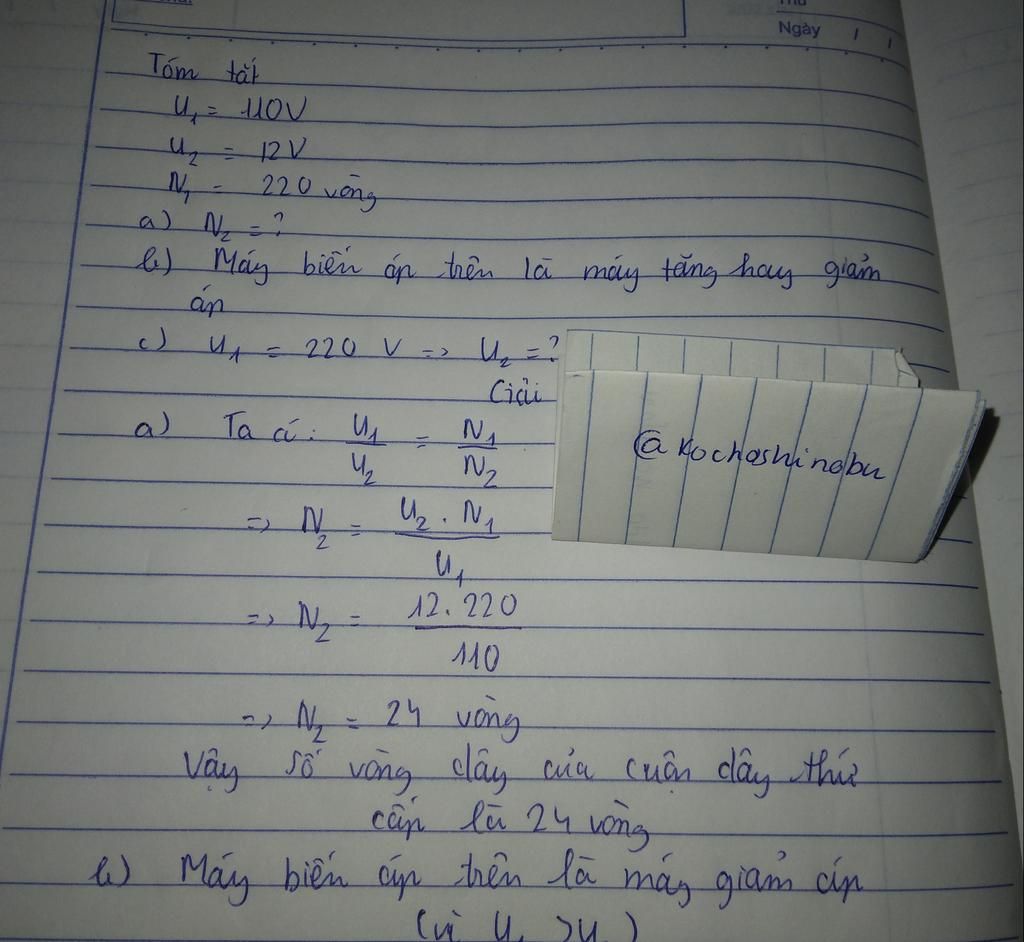 Ngày / /
Tóm tắt
U₁ = 110V
U₂ = 12V
N₁ = 220 vòng
a) N₂ = ?
b) Máy biến áp trên là máy tăng hay giảm
áp
c) U₁ = 220 V => U₂ = ?
Giải
a) Ta có: U₁/U₂ = N₁/N₂
@kochoshinobu
=> N₂ = U₂ . N₁ / U₁
=> N₂ = 12.220 / 110
=> N₂ = 24 vòng
Vậy số vòng dây của cuộn dây thứ
cấp là 24 vòng
b) Máy biến áp trên là máy giảm áp
(vì U > U )